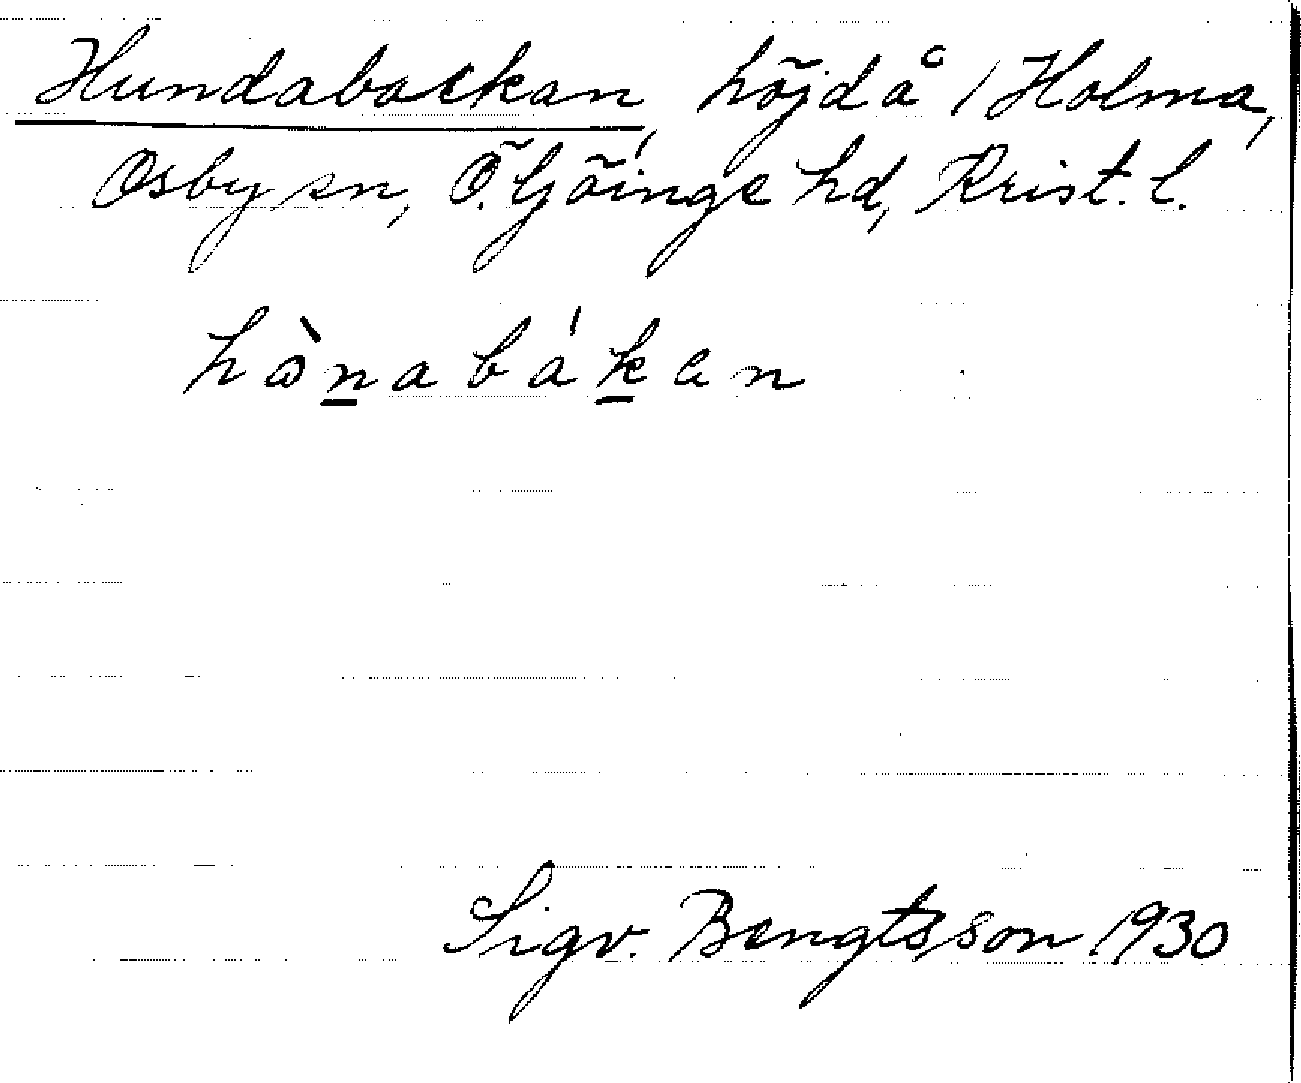 Hundabackan, höjd å / Holma,
Osby sn, Ö. Göinge hd, Krist. l.
hὼnabákan
Sigv. Bengtsson 1930